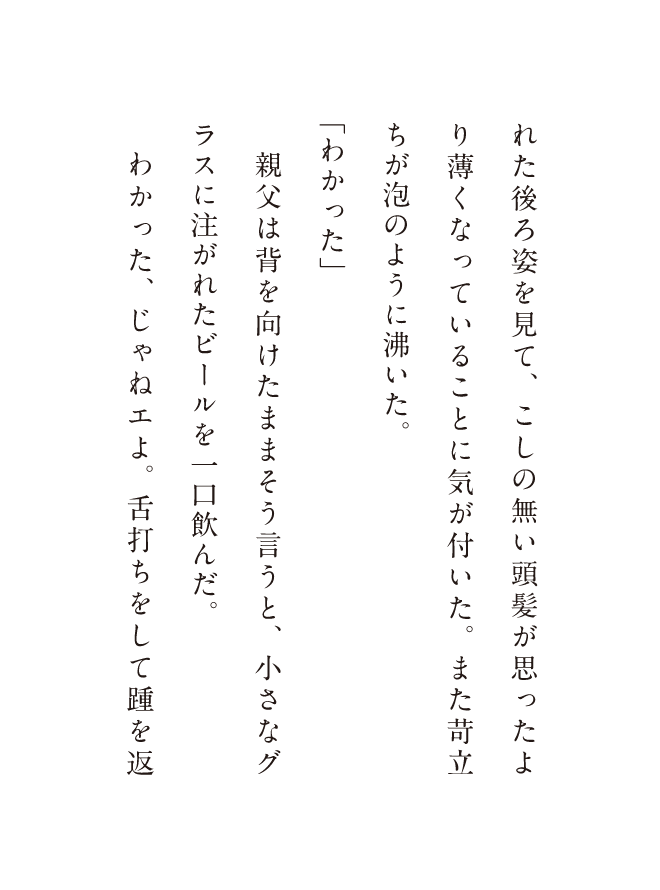 れた後ろ姿を見て、こしの無い頭髪が思ったよ
り薄くなっていることに気が付いた。また苛立
ちが泡のように沸いた。
「わかった」
親父は背を向けたままそう言うと、小さなグ
ラスに注がれたビールを一口飲んだ。
わかった、じゃねエよ。舌打ちをして踵を返